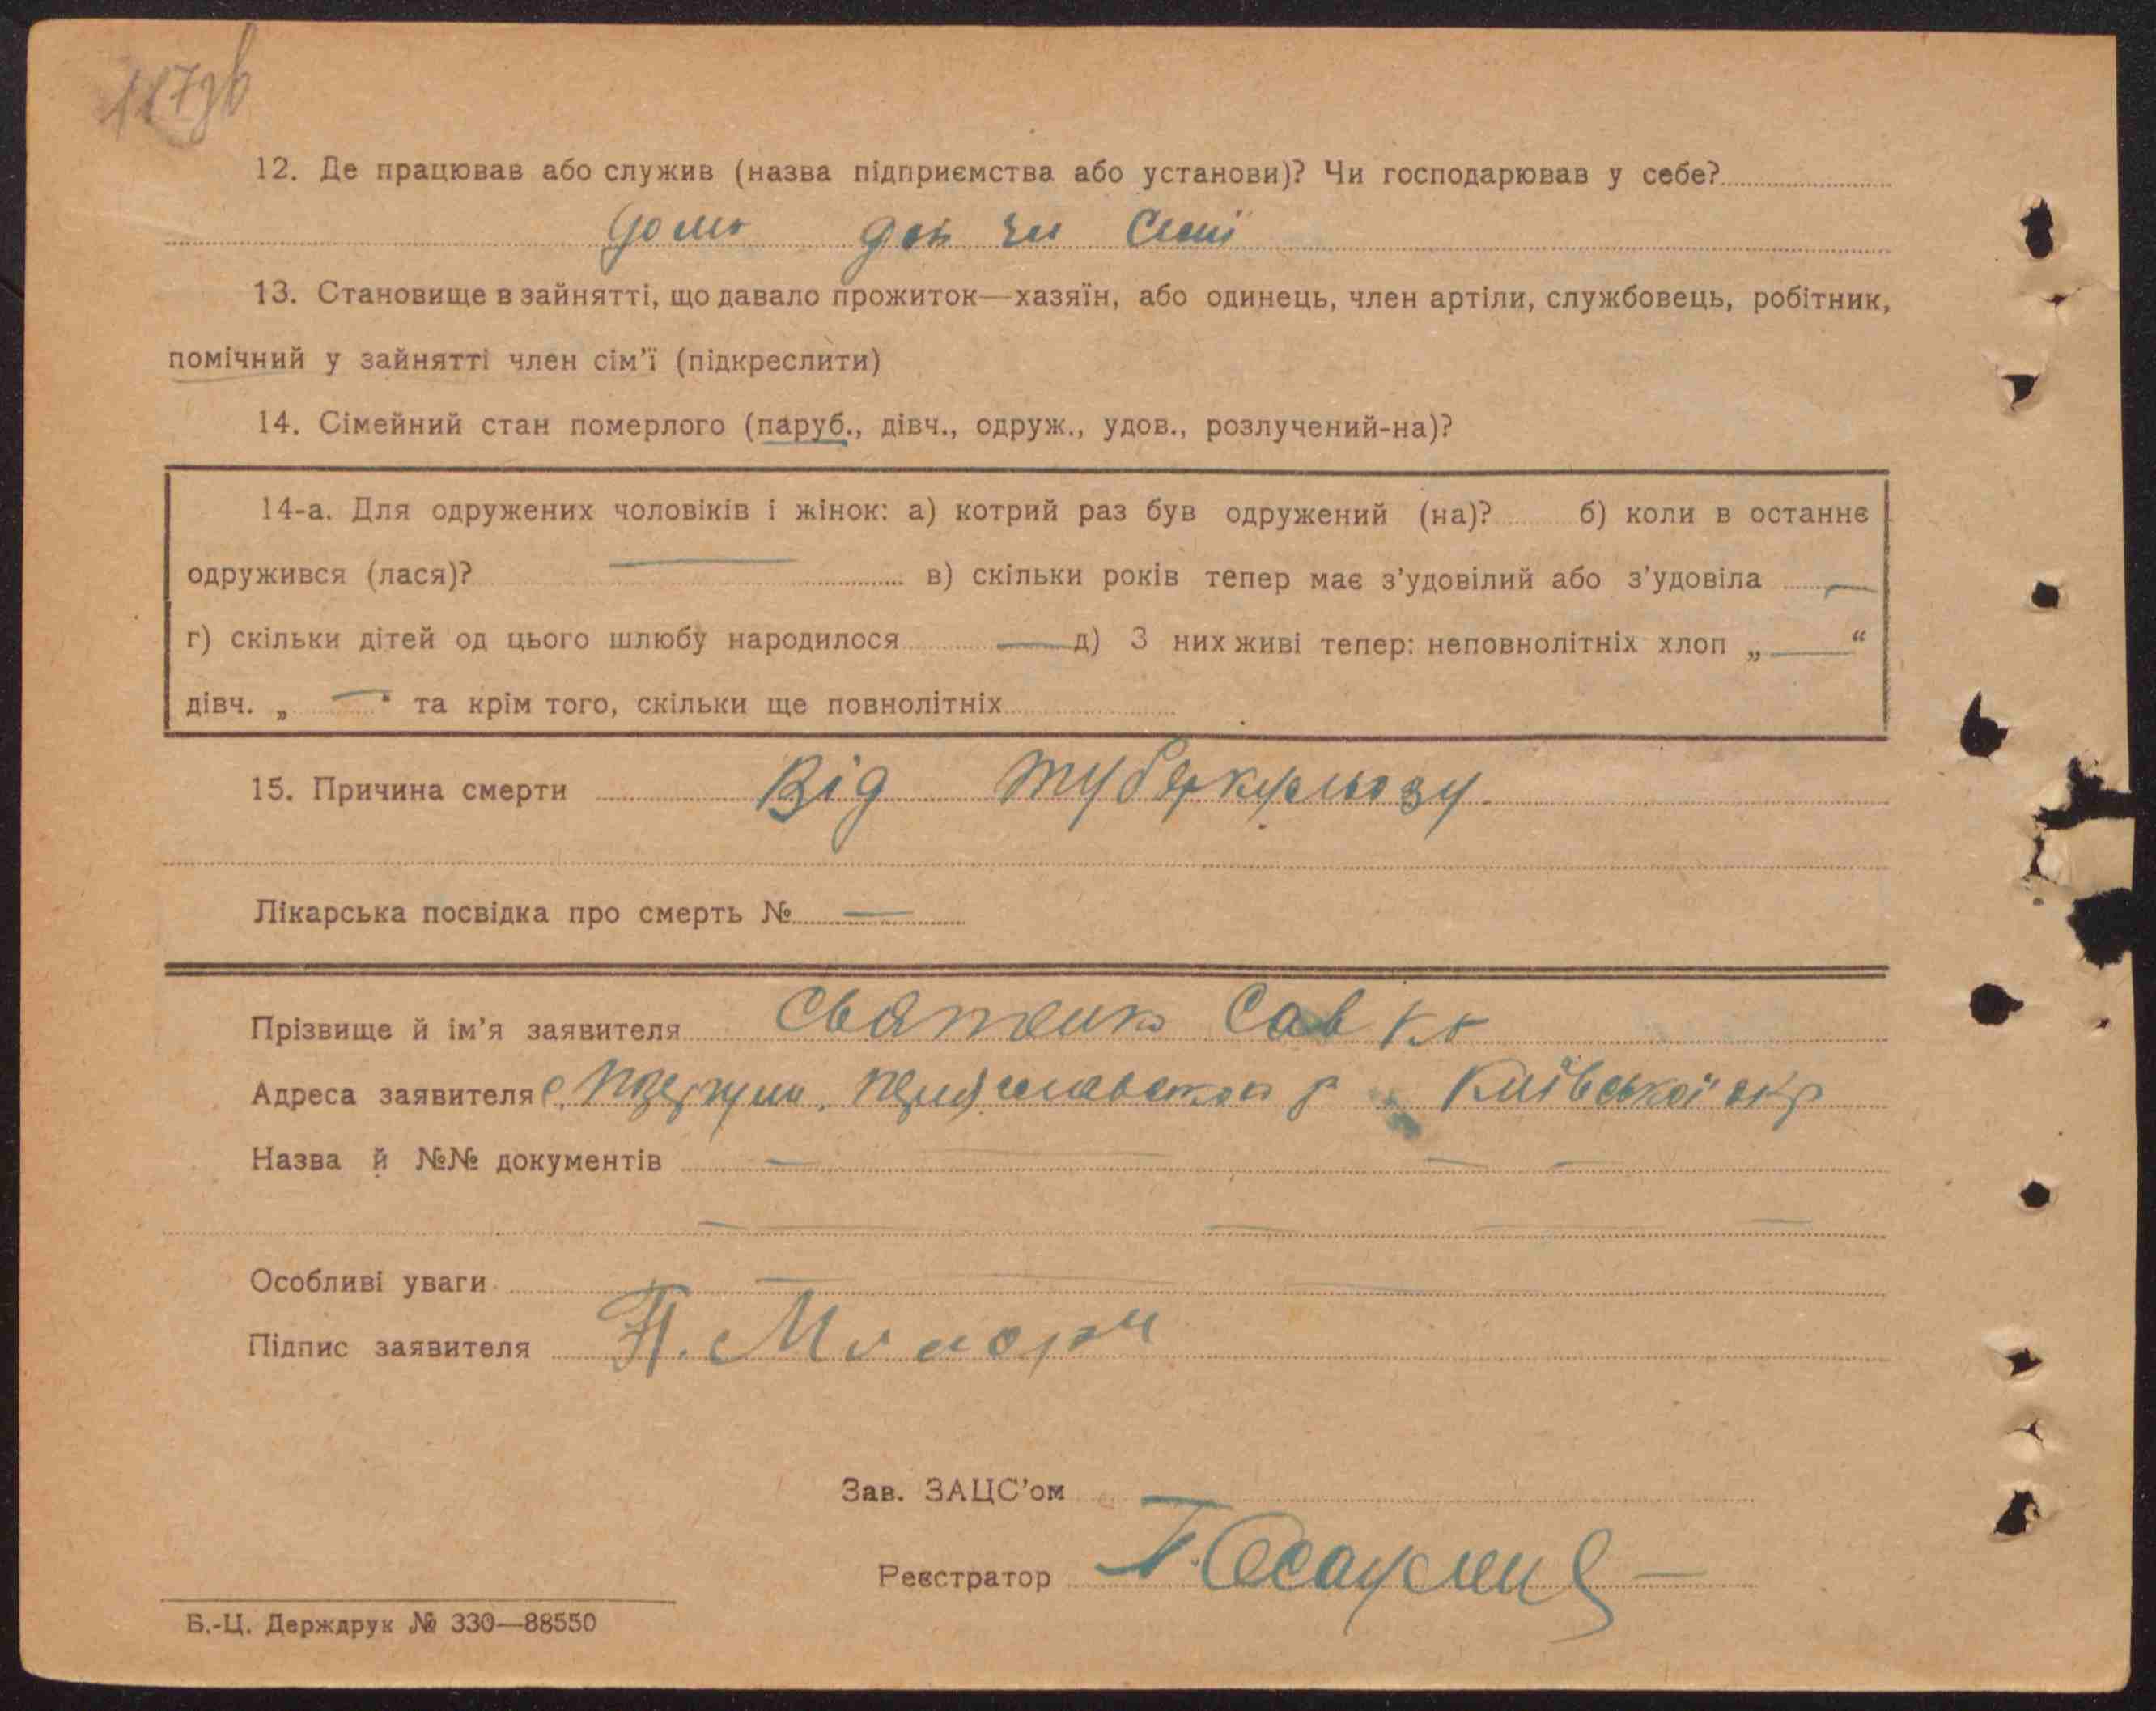 12. Де працював або служив (назва підприємства або установи)? Чи господарював у себе?
13. Становище в зайнятті, що давало прожиток—хазяїн, або одинець, член артіли, службовець, робітник,
помічний у зайнятті член сім’ї (підкреслити)
14. Сімейний стан померлого (паруб., дівч., одруж., удов., розлучений-на)?
14-а. Для одружених чоловіків і жінок: а) котрий раз був одружений (на)? б) коли в останнє
одружився (лася)? в) скільки років тепер має з’удовілий або з’удовіла
г) скільки дітей од цього шлюбу народилося д) З них живі тепер: неповнолітніх хлоп „ “
дівч. „ “ та крім того, скільки ще повнолітніх
15. Причина смерти Від туберкульозу
Лікарська посвідка про смерть №
Прізвище й ім’я заявителя Святенко Савка
Адреса заявителя с. Київської окр
Назва й №№ документів
Особливі уваги
Підпис заявителя
Зав. ЗАЦС’ом
Реєстратор
Б.-Ц. Держдрук № 330—88550